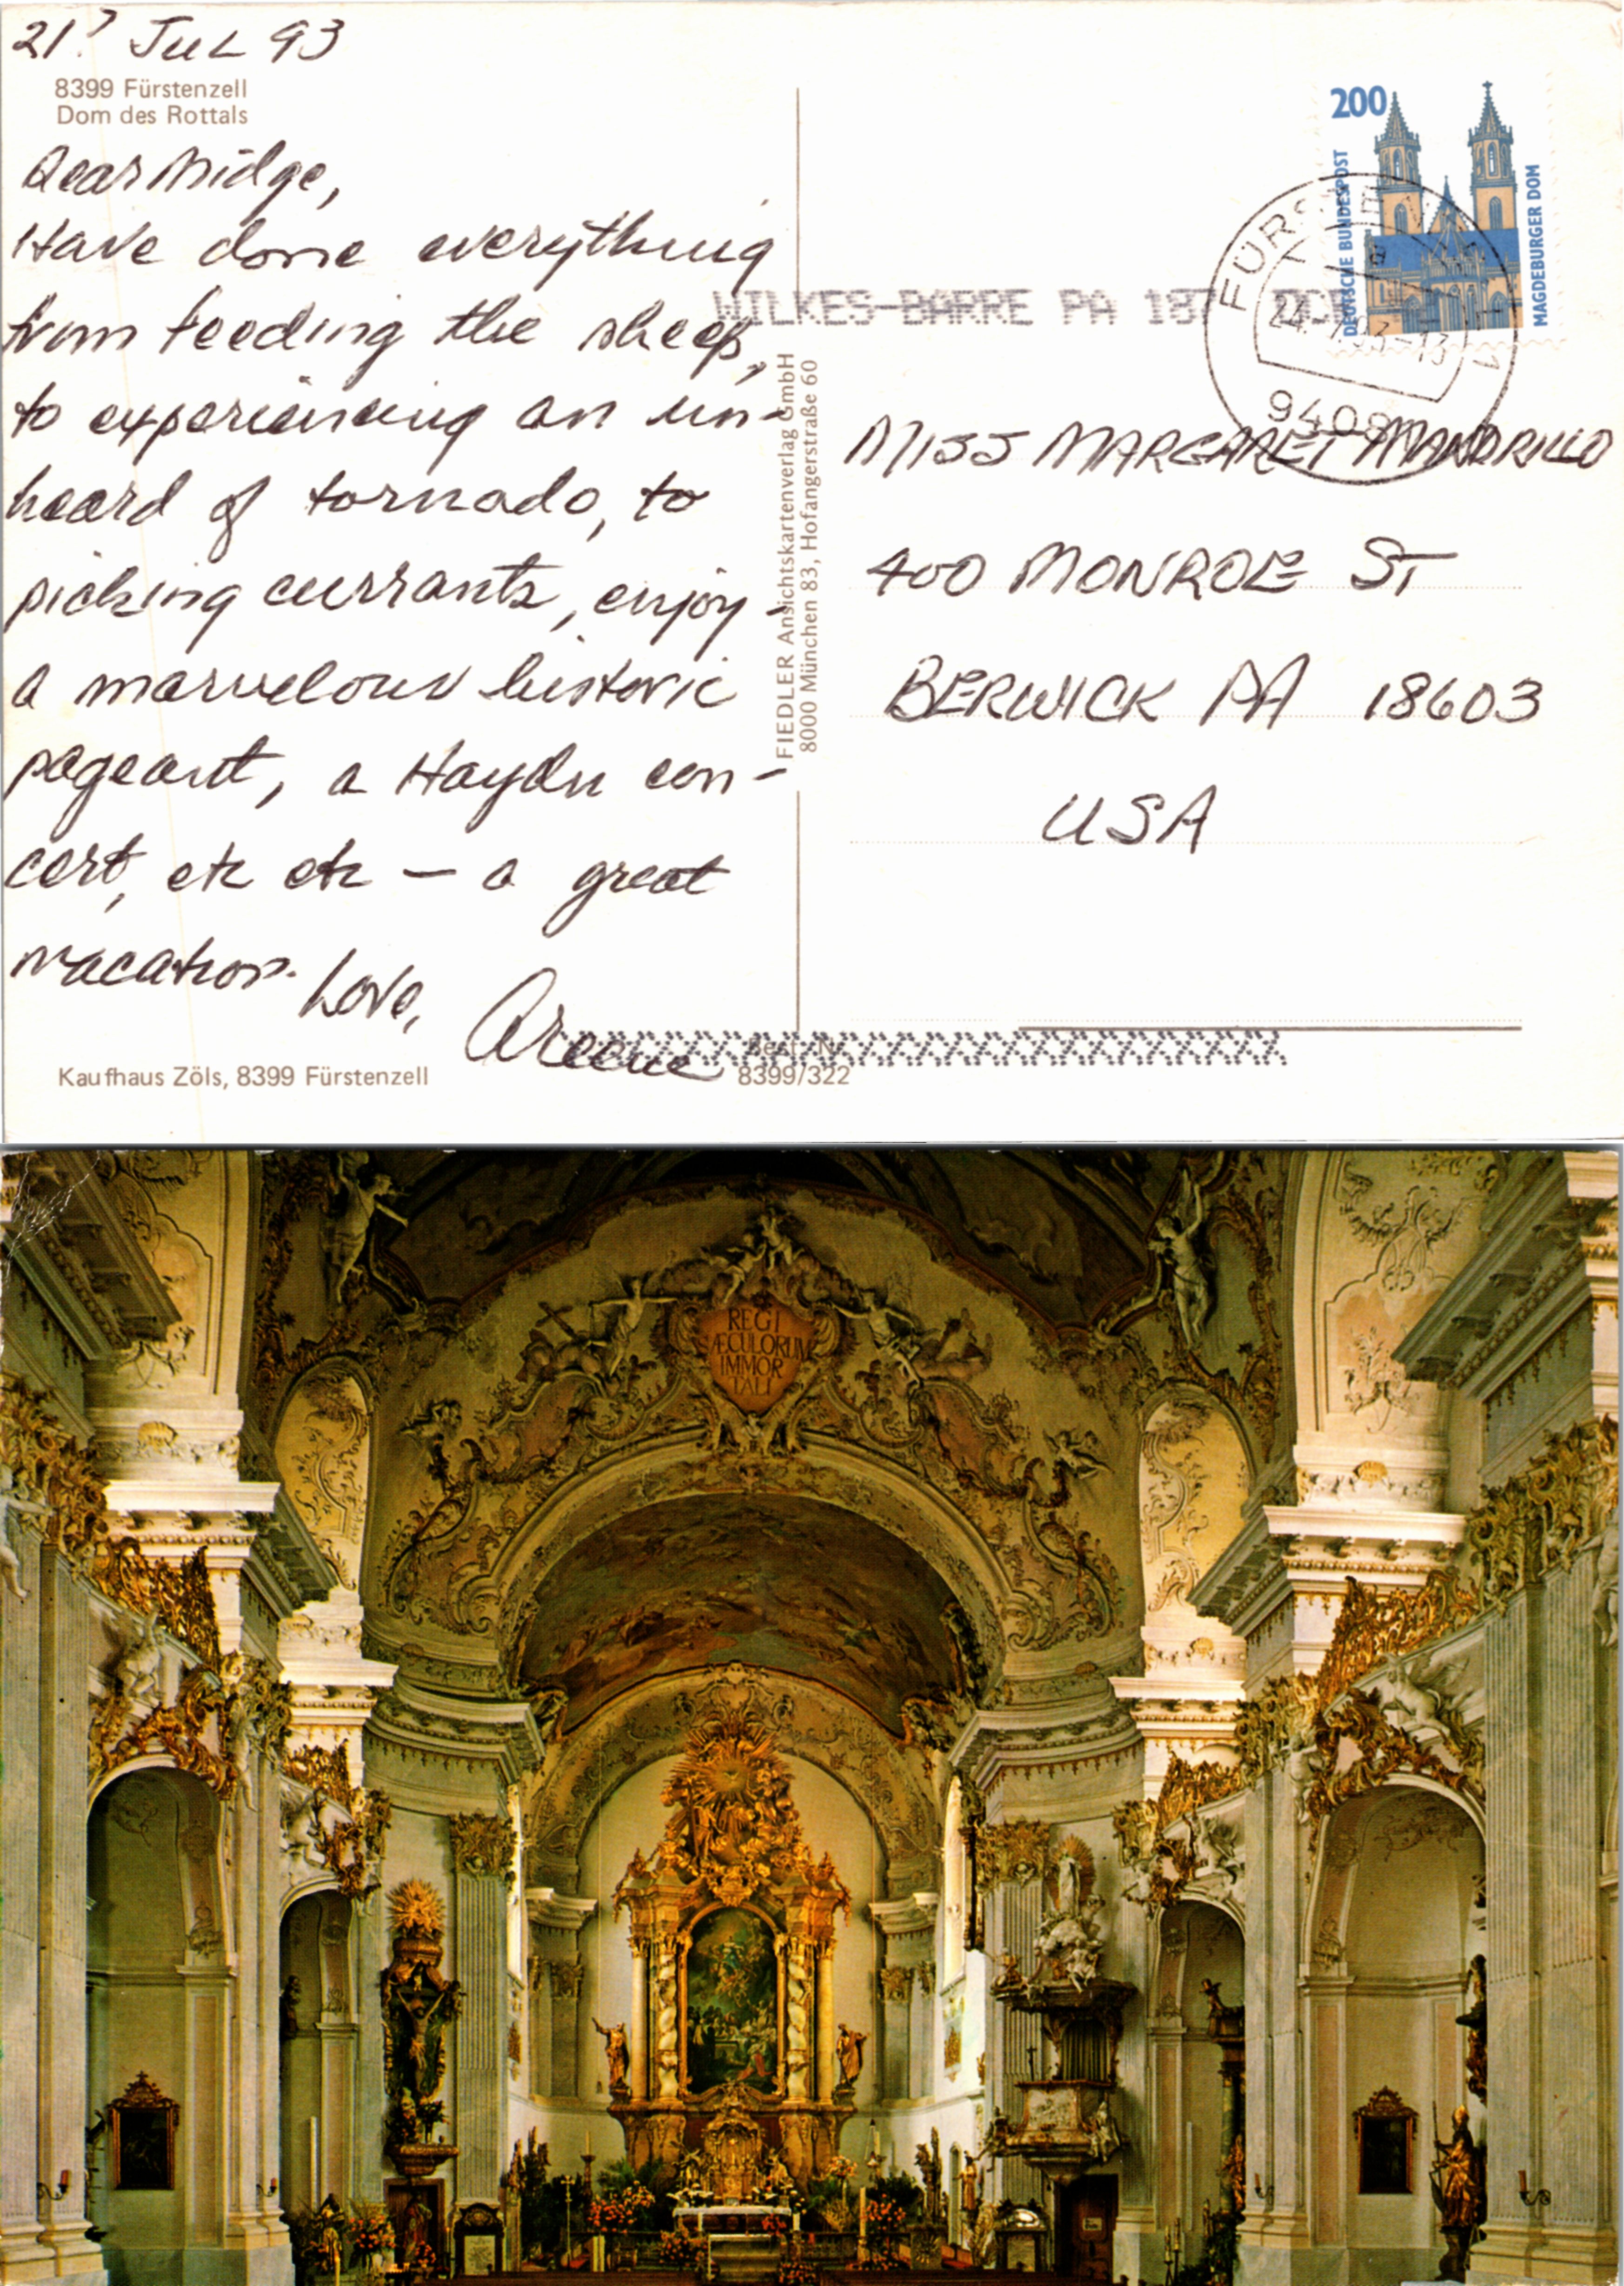 21? JUL 93
8399 Fürstenzell
Dom des Rottals
Dear Midge,
Have done everything
from feeding the sheep,
to experiencing an un-
heard of tornado, to
picking currants, enjoy-
a marvelous historic
pageant, a Haydn con-
cert, etc etc — a great
vacation. Love,
Areene
Kaufhaus Zöls, 8399 Fürstenzell
8399/322
FIEDLER Ansichtskartenverlag GmbH
8000 München 83, Hofangerstraße 60
WILKES-BARRE PA 187
200
DEUTSCHE BUNDESPOST
MAGDEBURGER DOM
9408
MISS MARGARET MANDRILLO
400 MONROE ST
BERWICK PA 18603
USA
REGI
SÆCULORUM
IMMOR
TALI